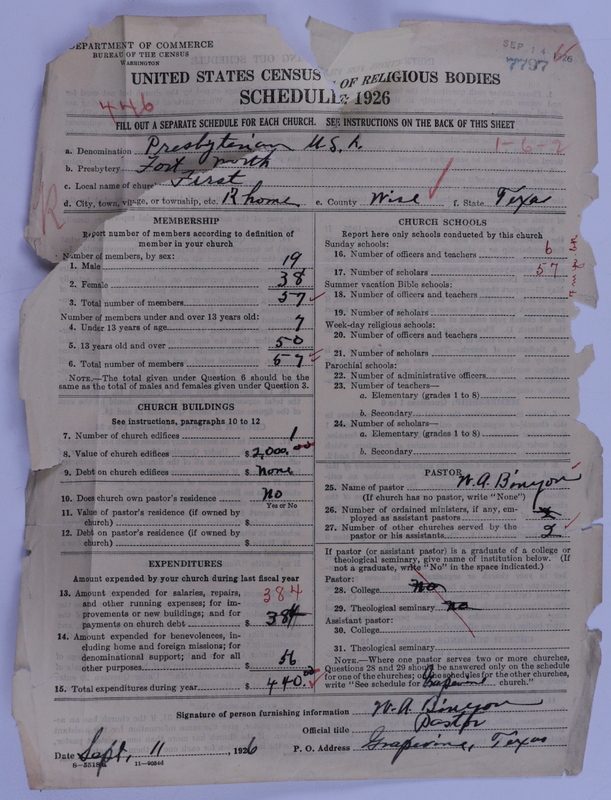 DEPARTMENT OF COMMERCE
BUREAU OF THE CENSUS
WASHINGTON
SEP 14 1926
7797
UNITED STATES CENSUS OF RELIGIOUS BODIES
SCHEDULE: 1926
446
FILL OUT A SEPARATE SCHEDULE FOR EACH CHURCH. SEE INSTRUCTIONS ON THE BACK OF THIS SHEET
a. Denomination Presbyterian U.S.A.
1-6-2
b. Presbytery Fort Worth
c. Local name of church First
d. City, town, village, or township, etc. Rhome e. County Wise f. State Texas
R
MEMBERSHIP
Report number of members according to definition of
member in your church
Number of members, by sex:
1. Male 19
2. Female 38
3. Total number of members 57
Number of members under and over 13 years old:
4. Under 13 years of age 7
5. 13 years old and over 50
6. Total number of members 57
NOTE.—The total given under Question 6 should be the
same as the total of males and females given under Question 3.
CHURCH BUILDINGS
See instructions, paragraphs 10 to 12
7. Number of church edifices 1
8. Value of church edifices $ 2,000.00
9. Debt on church edifices $ None
10. Does church own pastor's residence No
Yes or No
11. Value of pastor's residence (if owned by
church) $
12. Debt on pastor's residence (if owned by
church) $
EXPENDITURES
Amount expended by your church during last fiscal year
13. Amount expended for salaries, repairs,
and other running expenses; for im-
provements or new buildings; and for
payments on church debt $ 384
384
14. Amount expended for benevolences, in-
cluding home and foreign missions; for
denominational support; and for all
other purposes $ 56
15. Total expenditures during year $ 440.00
CHURCH SCHOOLS
Report here only schools conducted by this church
Sunday schools:
16. Number of officers and teachers 6
17. Number of scholars 57
Summer vacation Bible schools:
18. Number of officers and teachers
19. Number of scholars
Week-day religious schools:
20. Number of officers and teachers
21. Number of scholars
Parochial schools:
22. Number of administrative officers
23. Number of teachers—
a. Elementary (grades 1 to 8)
b. Secondary
24. Number of scholars—
a. Elementary (grades 1 to 8)
b. Secondary
PASTOR
25. Name of pastor W. A. Binyon
(If church has no pastor, write "None")
26. Number of ordained ministers, if any, em-
ployed as assistant pastors
27. Number of other churches served by the
pastor or his assistants 2
If pastor (or assistant pastor) is a graduate of a college or
theological seminary, give name of institution below. (If
not a graduate, write "No" in the space indicated.)
Pastor:
28. College No
29. Theological seminary no
Assistant pastor:
30. College
31. Theological seminary
NOTE.—Where one pastor serves two or more churches,
Questions 28 and 29 should be answered only on the schedule
for one of the churches; on the schedules for the other churches,
write "See schedule for Grapevine church."
Signature of person furnishing information W. A. Binyon
Official title Pastor
Date Sept, 11, 1926 P. O. Address Grapevine, Texas